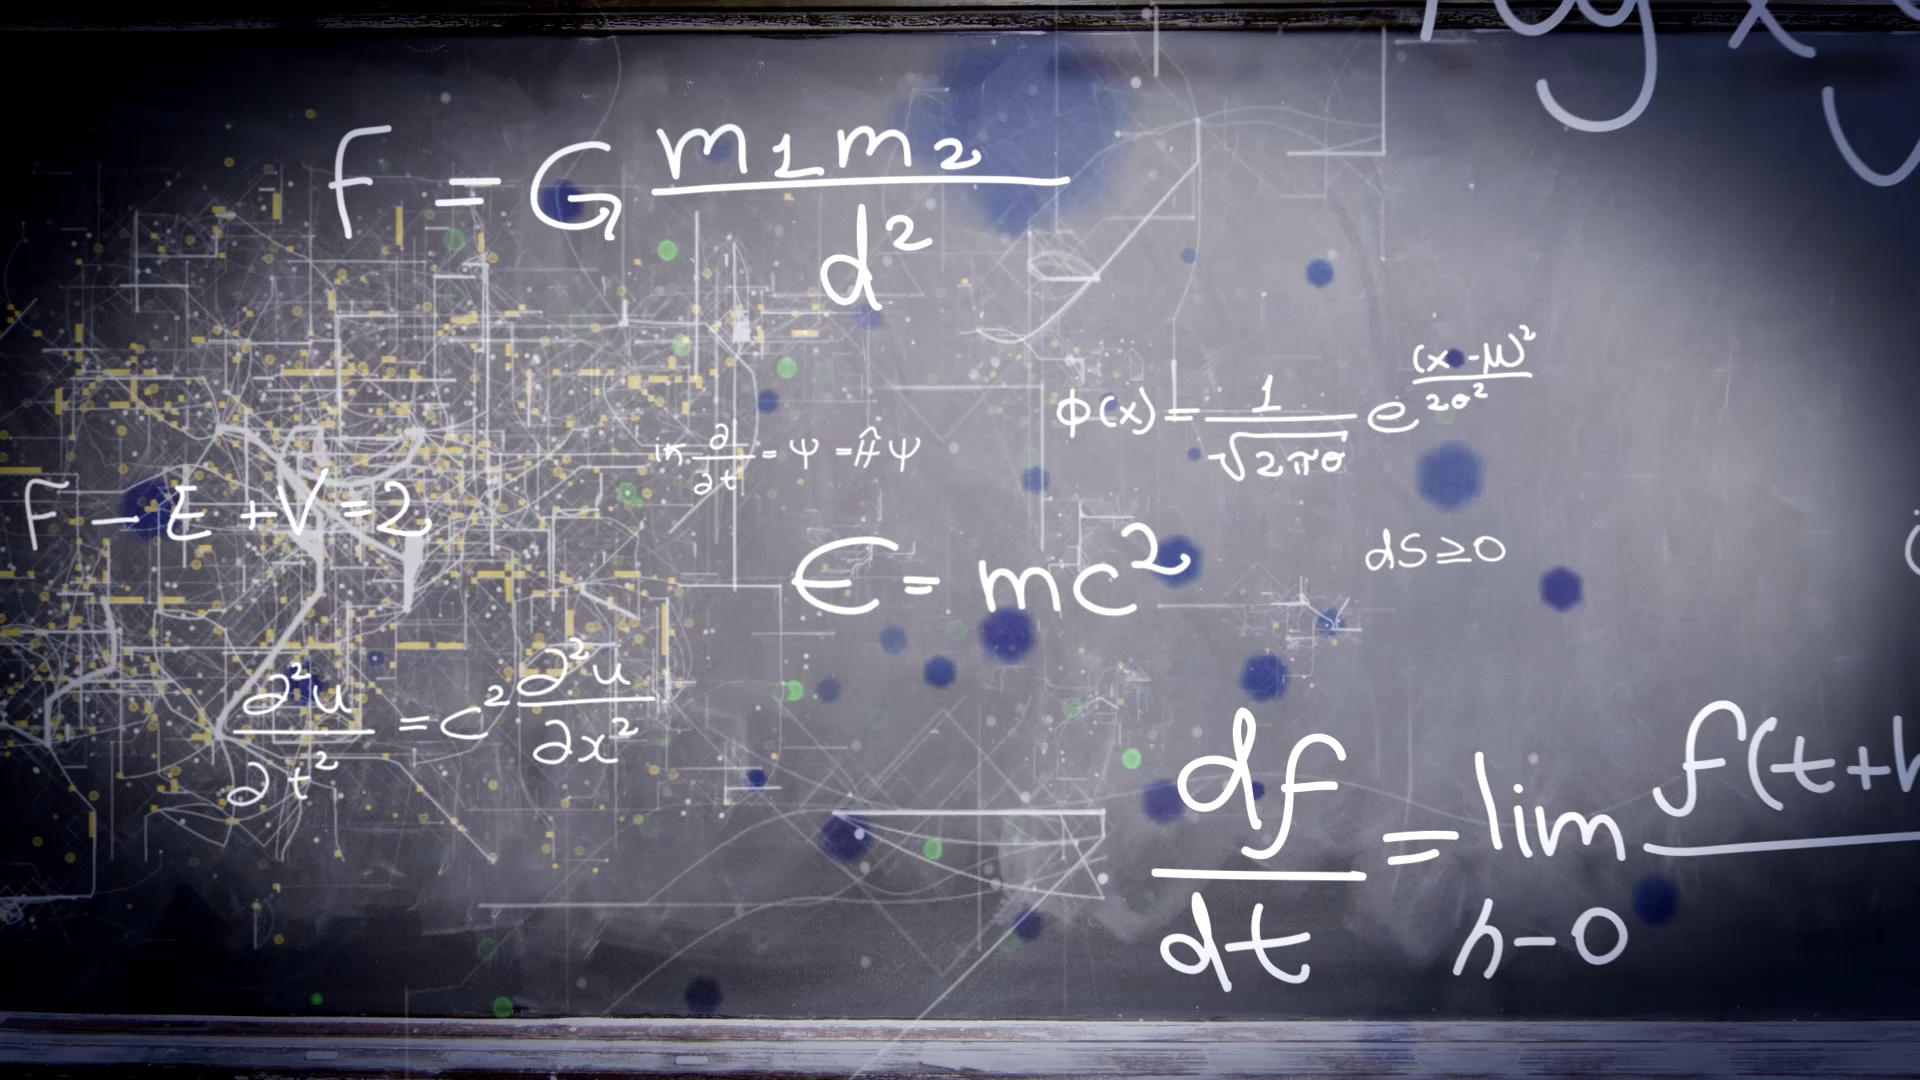 log x y
F = G m1m2 / d²
ϕ(x) = 1 / √2πσ e (x-μ)² / 2σ²
iħ ∂ / ∂t = Ψ = Ĥ Ψ
F - E + V = 2
E = mc²
dS ≥ 0
∂²u / ∂t² = c² ∂²u / ∂x²
df / dt = lim h-0 f(t+h